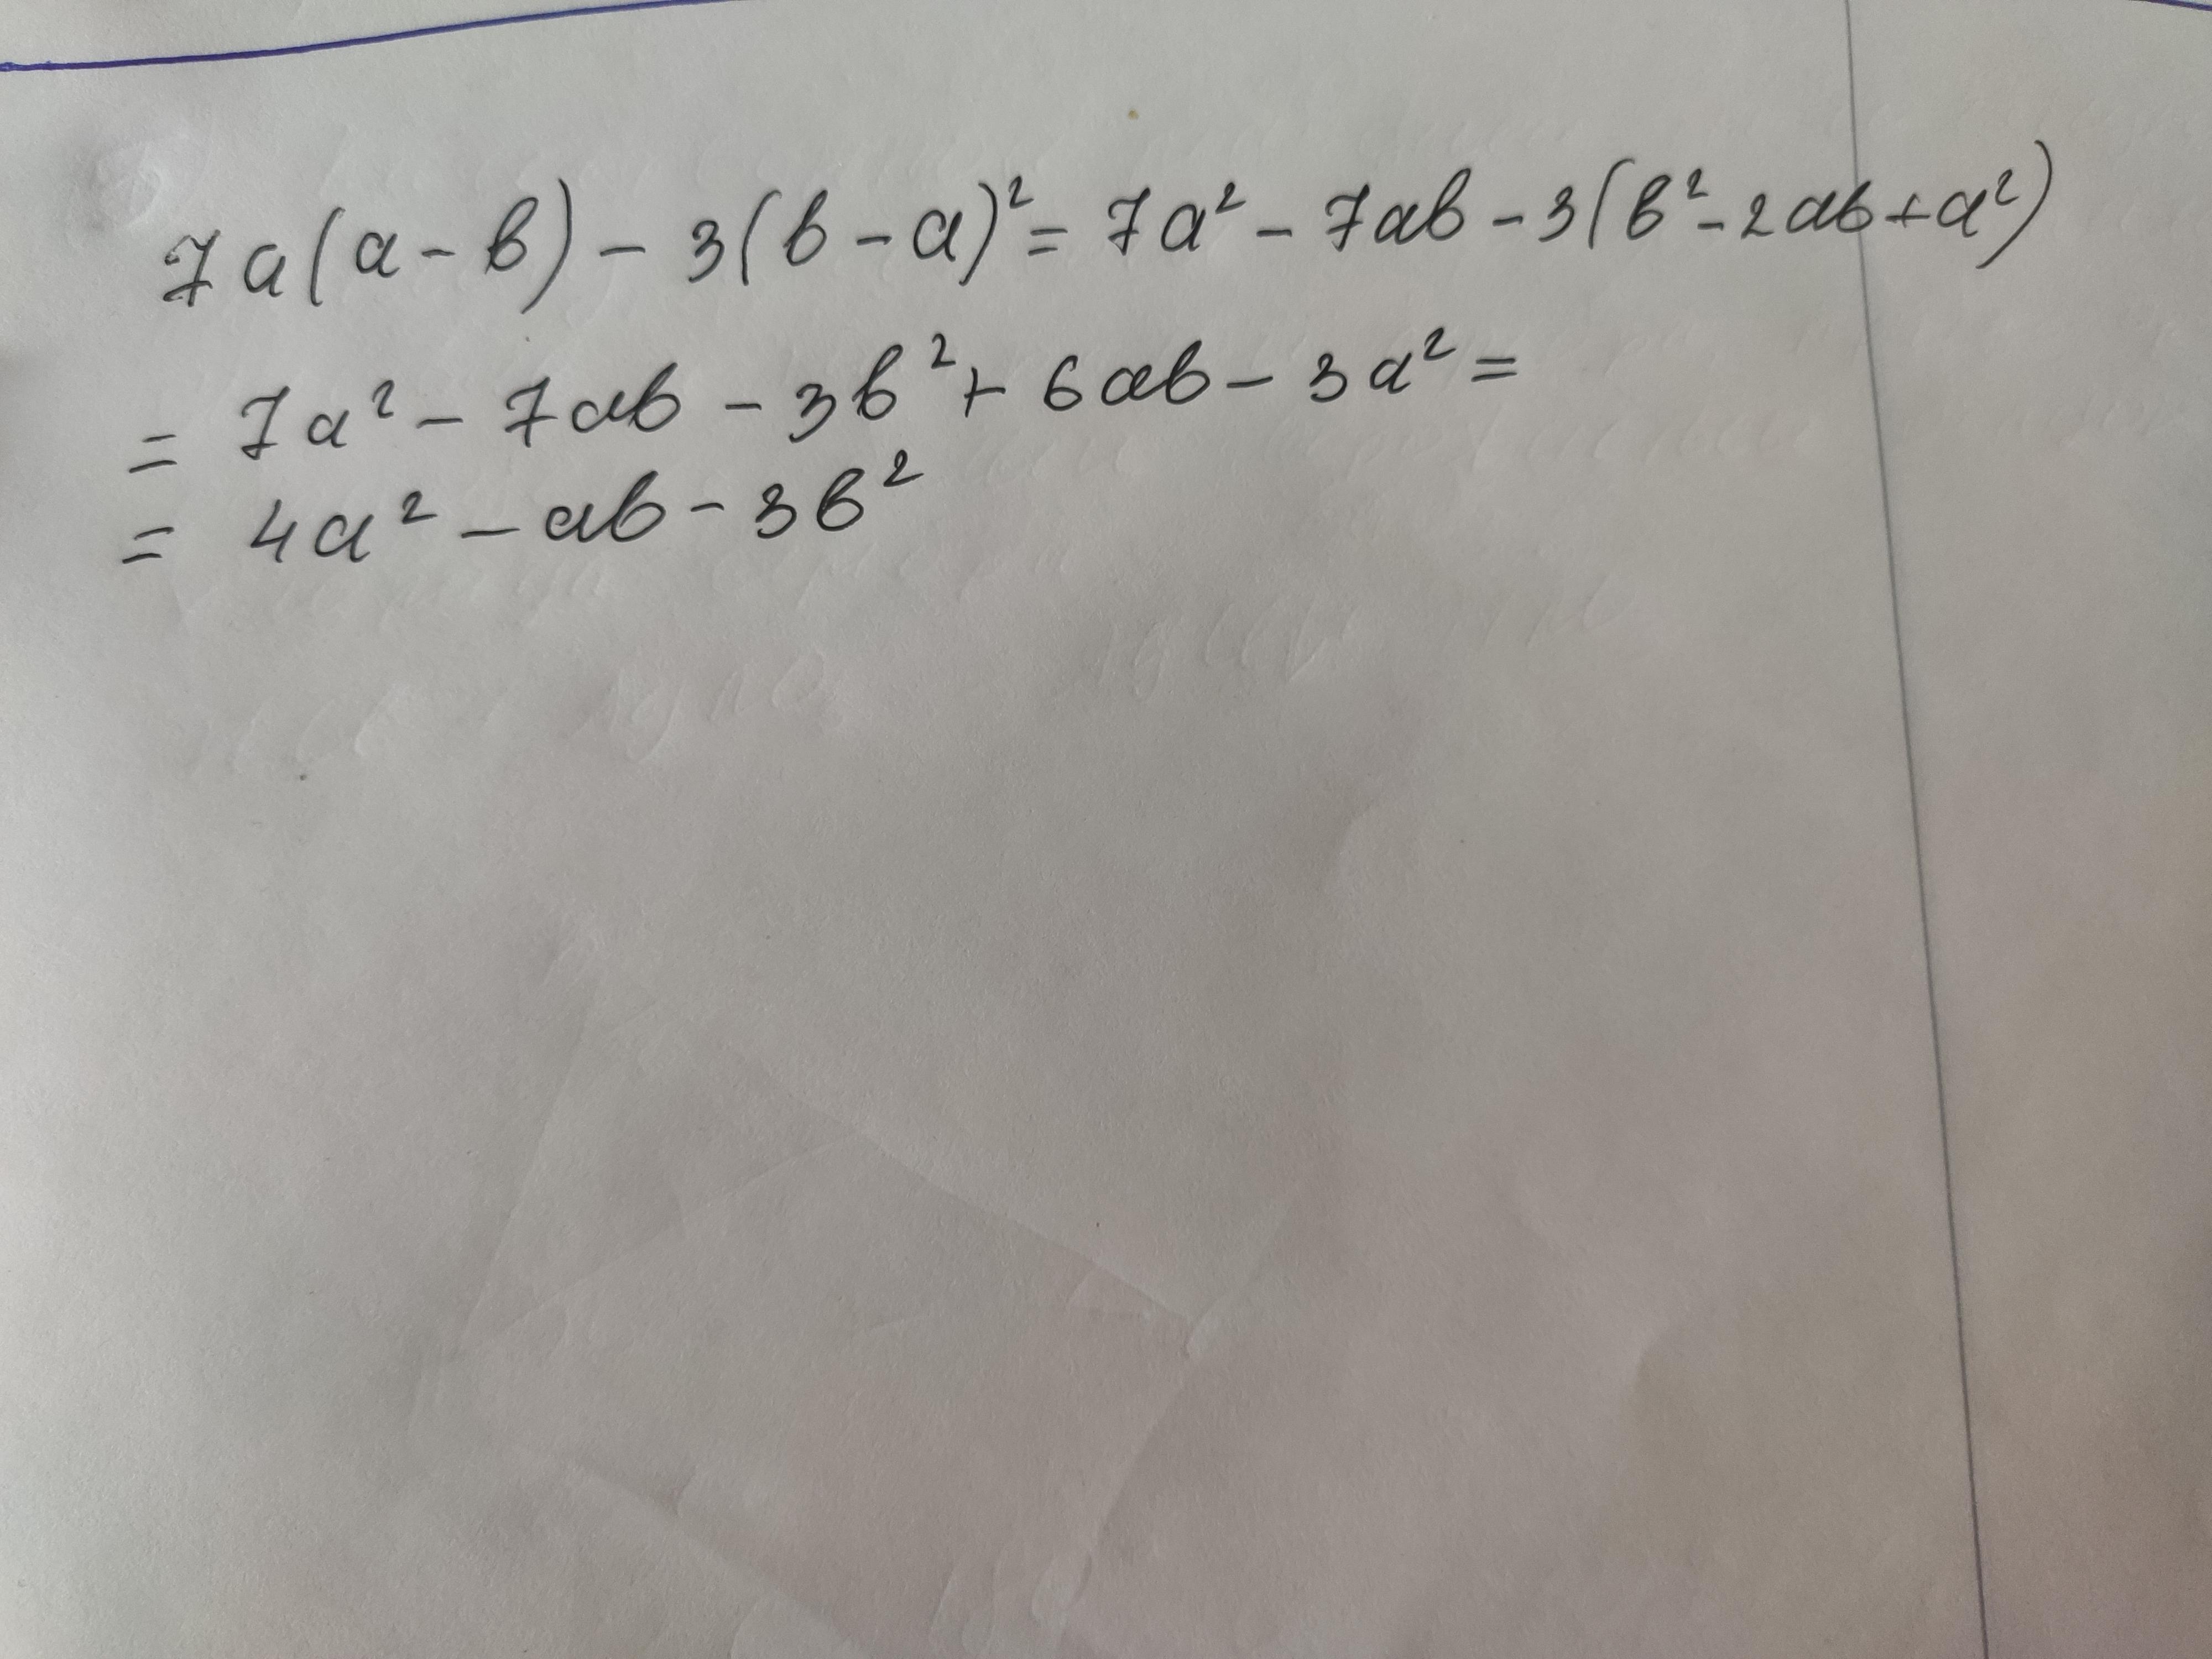 7a(a-b)-3(b-a)²=7a²-7ab-3(b²-2ab+a²)
=7a²-7ab-3b²+6ab-3a²=
=4a²-ab-3b²